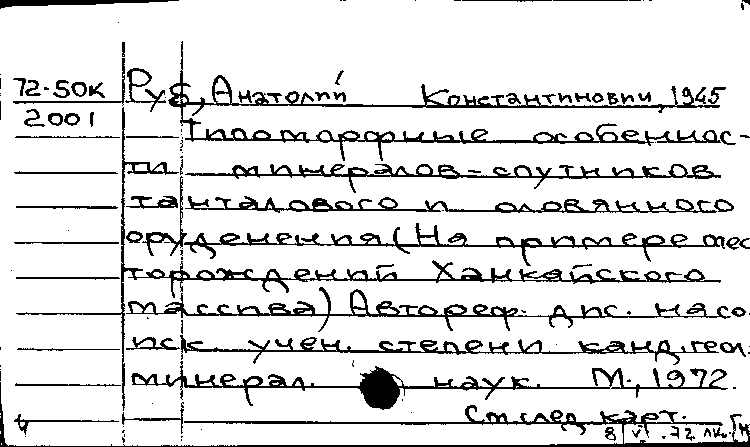 72-50к Руб, Анатолий Константинович, 1945
2001
Типоморфные особеннос-
ти минералов-спутников
танталового и оловянного
оруденения (На примере мес
торождений Ханкайского
массива) Автореф. дис. на со
иск. учен. степени канд. геол.
минерал. наук. М., 1972.
См. след. карт.
8/VI.72